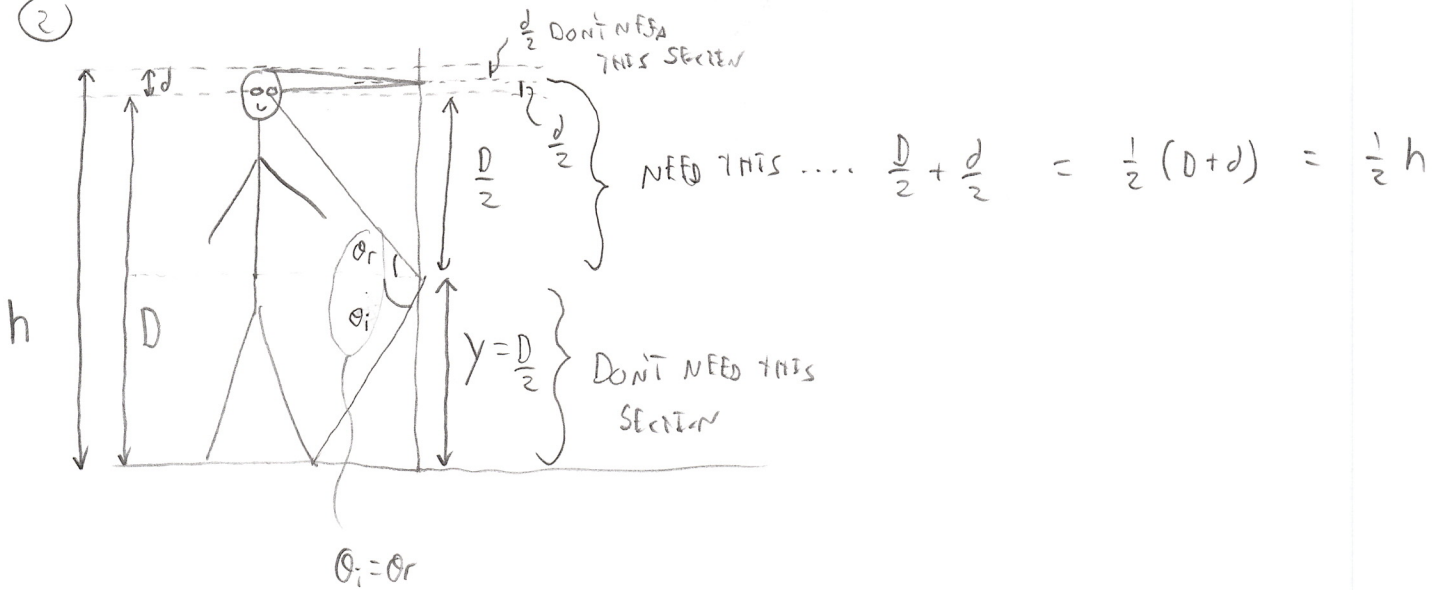 2
d/2 DON'T NEED
THIS SECTION
d
D/2
d/2
NEED THIS .... D/2 + d/2 = 1/2 (D+d) = 1/2 h
θr
θi
h
D
y = D/2
DON'T NEED THIS
SECTION
θi = θr